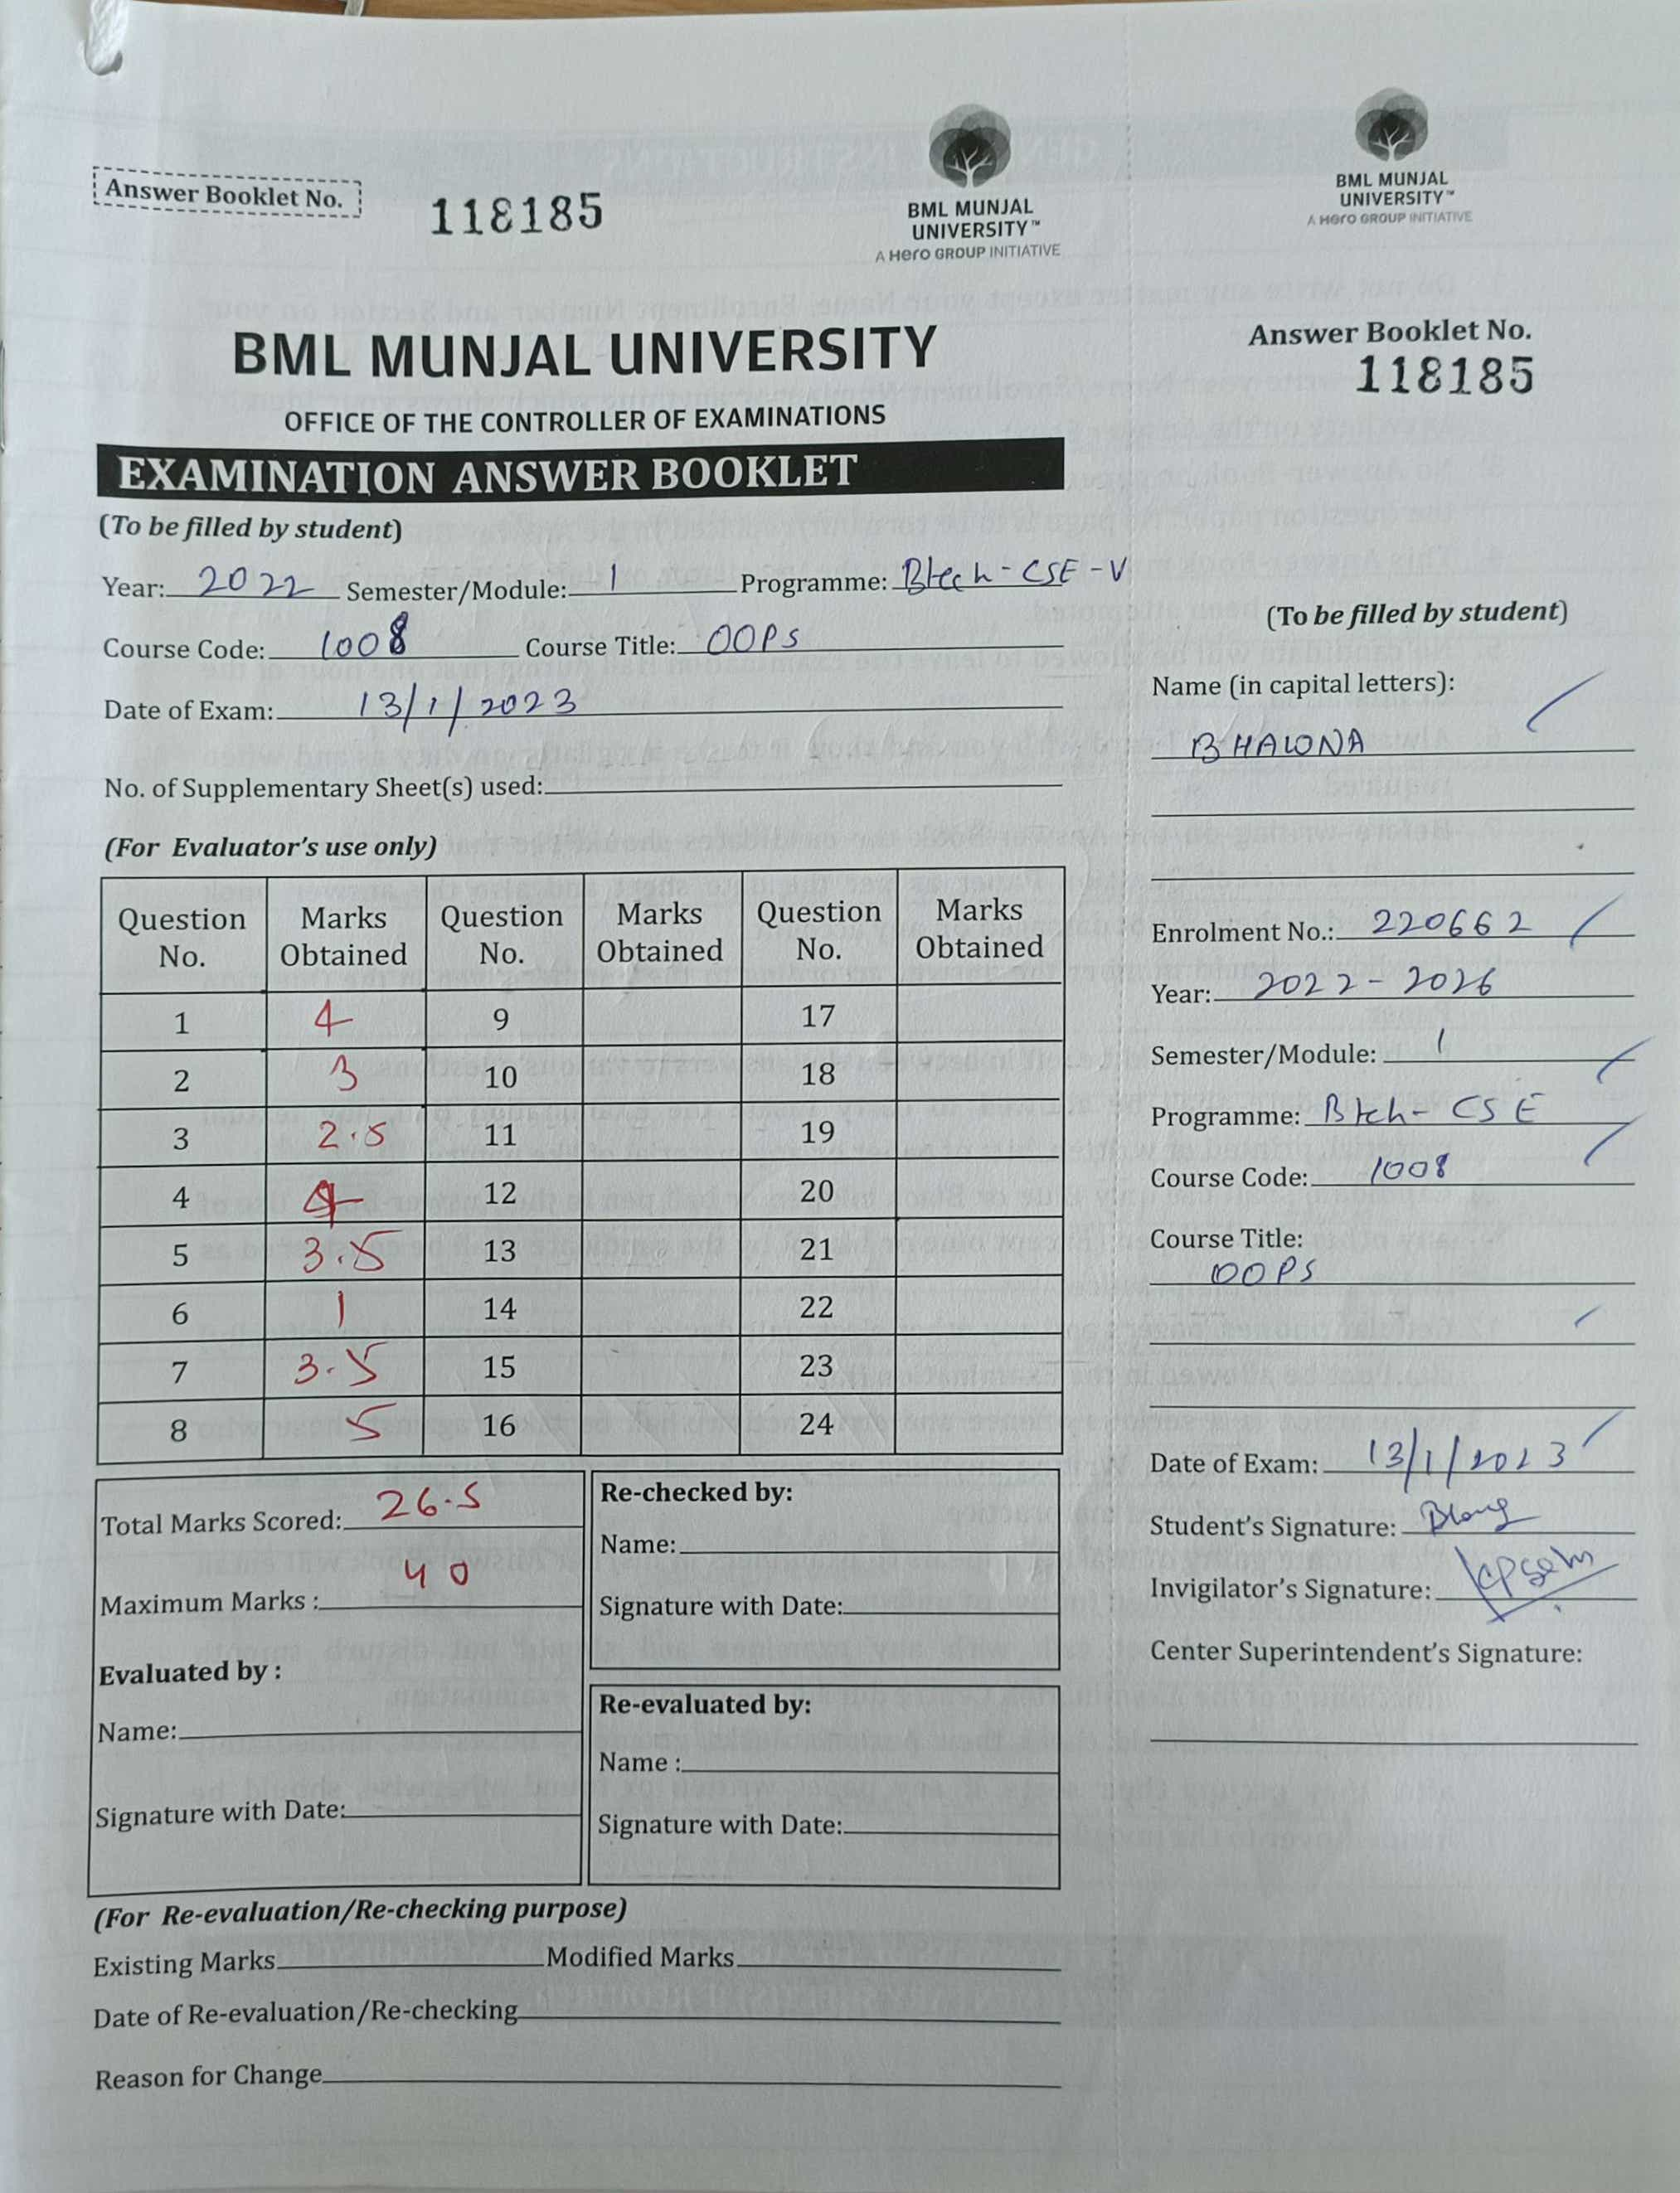 Answer Booklet No.
118185
BML MUNJAL
UNIVERSITY™
A Hero GROUP INITIATIVE
BML MUNJAL UNIVERSITY
OFFICE OF THE CONTROLLER OF EXAMINATIONS
EXAMINATION ANSWER BOOKLET
(To be filled by student)
Year: 2022 Semester/Module: 1 Programme: Btech-CSE-V
Course Code: 1008 Course Title: OOPS
Date of Exam: 13/1/2023
No. of Supplementary Sheet(s) used:
(For Evaluator's use only)
Question No. Marks Obtained Question No. Marks Obtained Question No. Marks Obtained
1 4 9 17
2 3 10 18
3 2.5 11 19
4 4 12 20
5 3.5 13 21
6 1 14 22
7 3.5 15 23
8 5 16 24
Total Marks Scored: 26.5
Maximum Marks : 40
Evaluated by :
Name:
Signature with Date:
Re-checked by:
Name:
Signature with Date:
Re-evaluated by:
Name :
Signature with Date:
(For Re-evaluation/Re-checking purpose)
Existing Marks Modified Marks
Date of Re-evaluation/Re-checking
Reason for Change
BML MUNJAL
UNIVERSITY™
A Hero GROUP INITIATIVE
Answer Booklet No.
118185
(To be filled by student)
Name (in capital letters):
BHALONA
Enrolment No.: 220662
Year: 2022-2026
Semester/Module: 1
Programme: Btch-CSE
Course Code: 1008
Course Title:
OOPS
Date of Exam: 13/1/2023
Student's Signature:
Invigilator's Signature:
Center Superintendent's Signature: